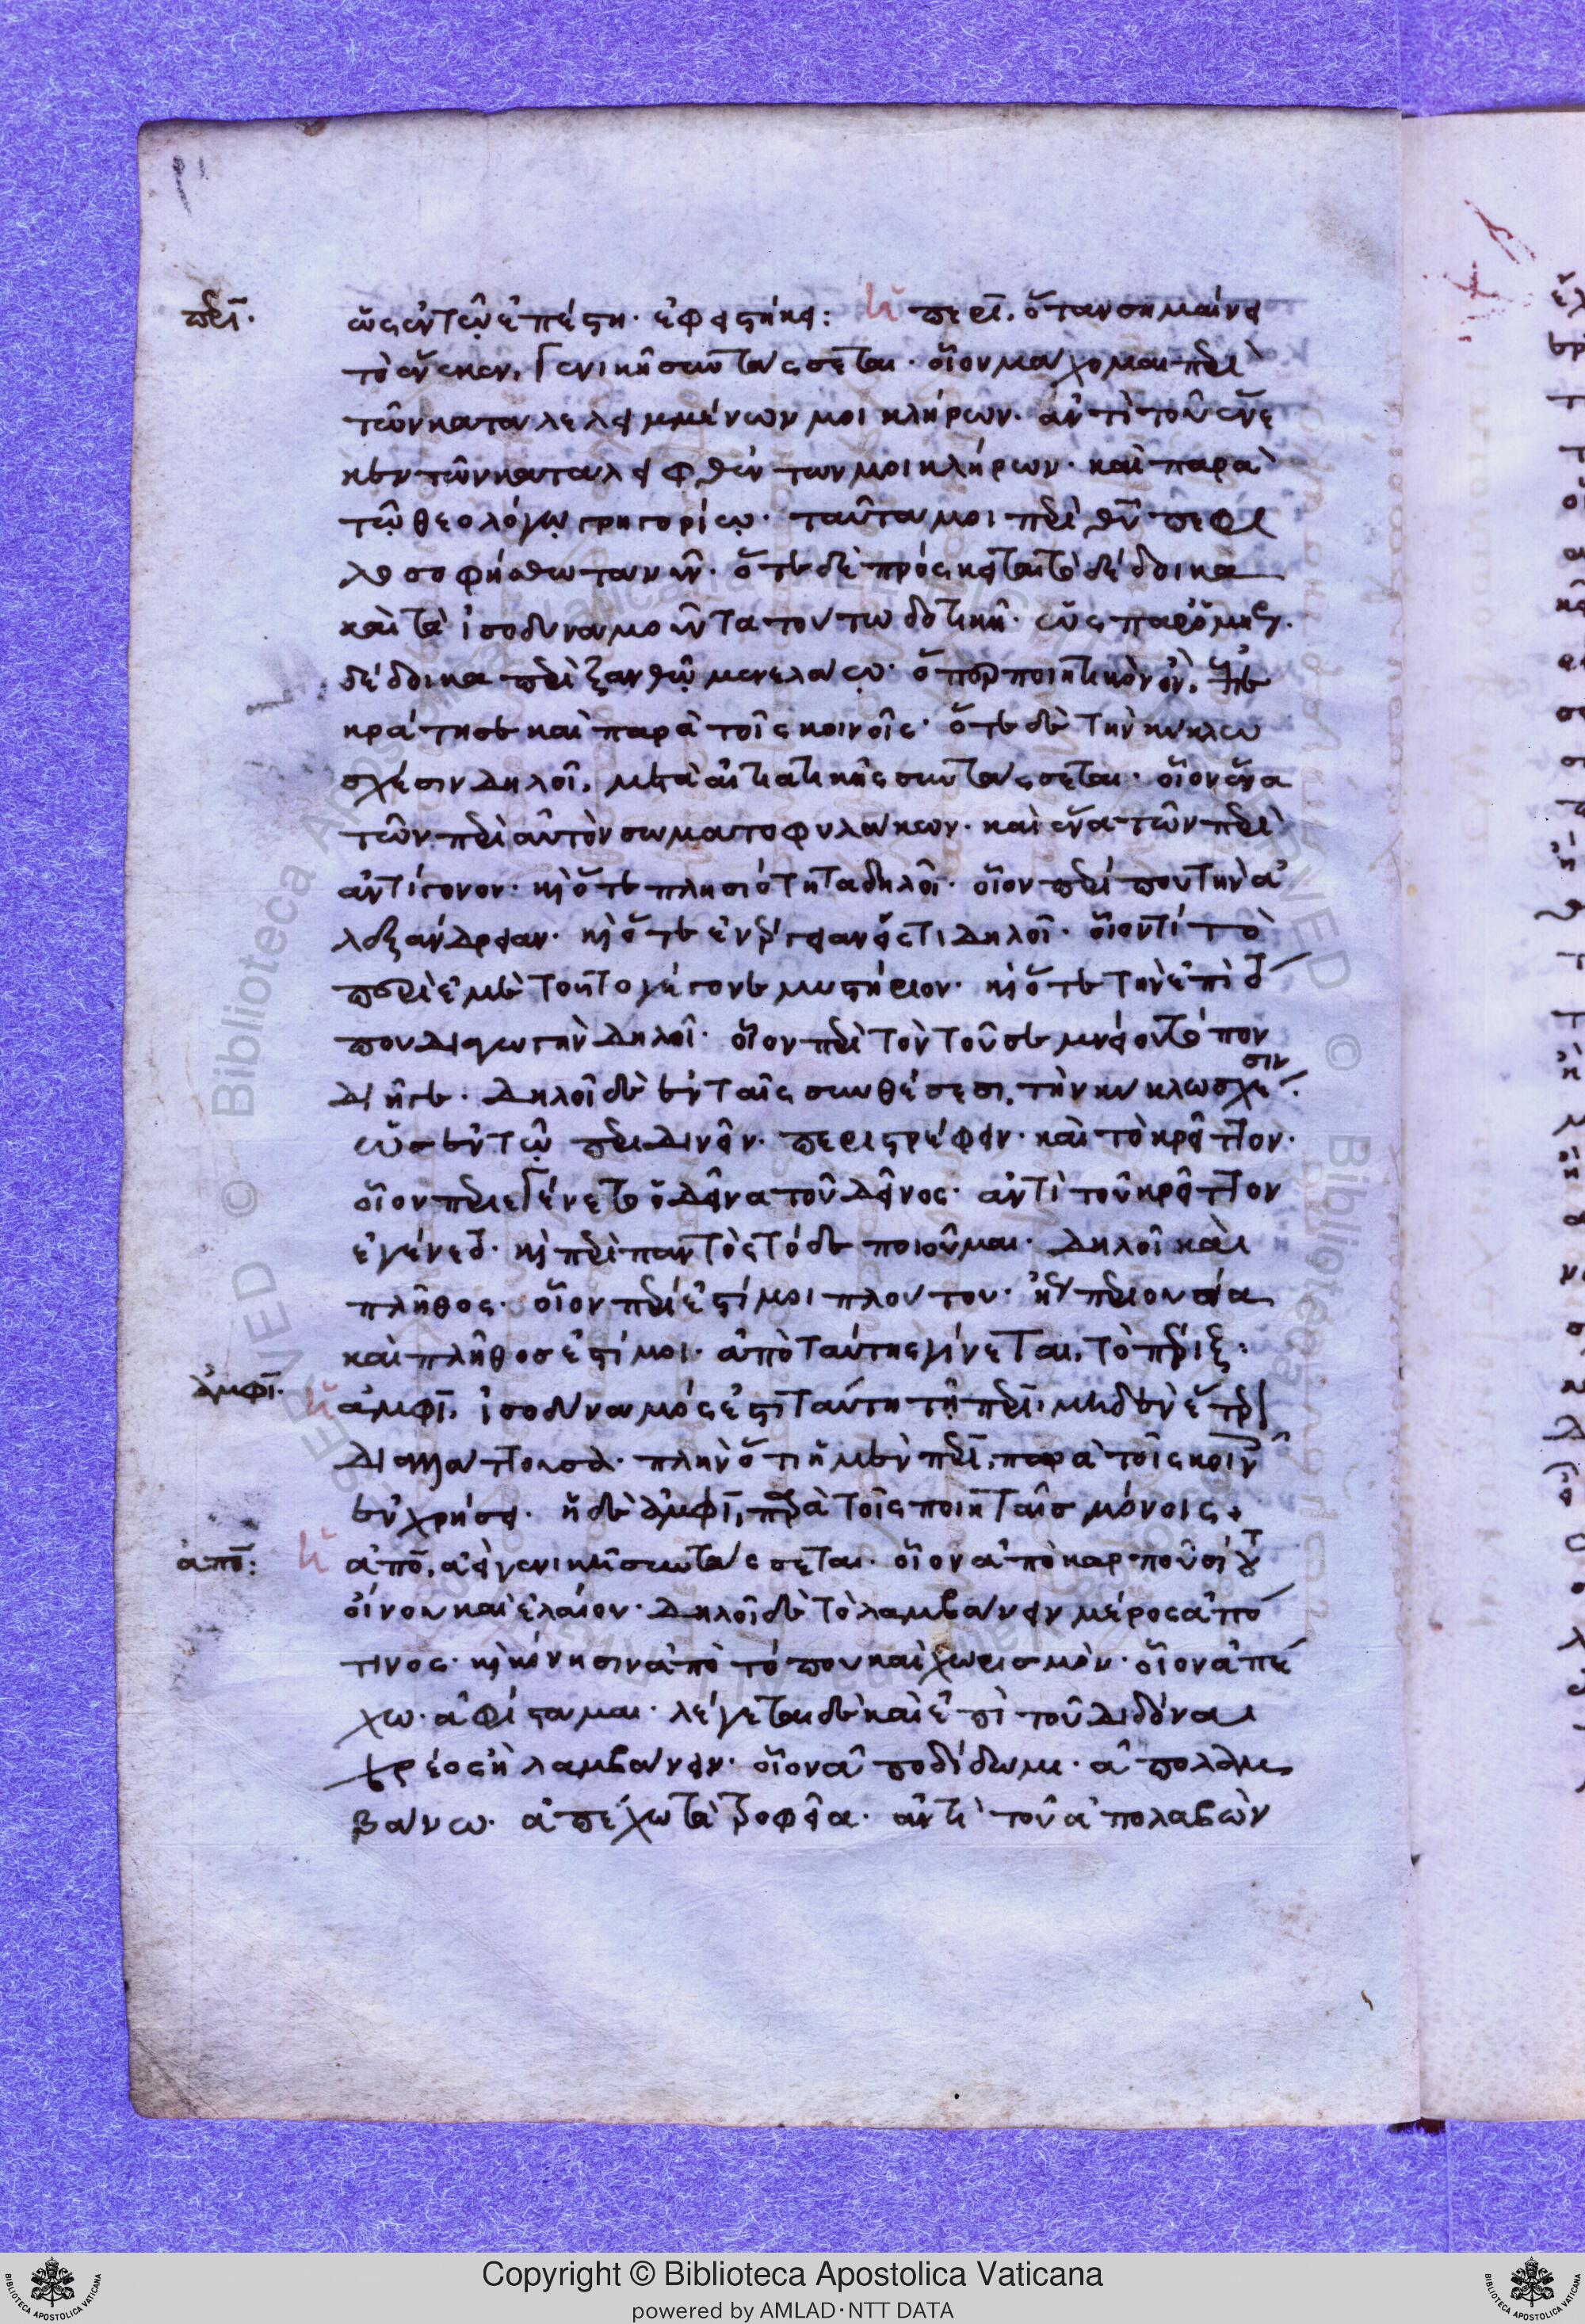 περί.
ὡς ἐν τῷ ἐπέστη. ἐφειστήκει: Ἡ περί, ὅταν σημαίνει
τὸ ἕνεκεν, γενικῇ συντάσσεται. οἷον μάχομαι περὶ
τῶν καταλελειμμένων μοι κλήρων. ἀντὶ τοῦ ἕνε
κεν τῶν καταλειφθέντων μοι κλήρων. καὶ παρὰ
τῷ θεολόγῳ γρηγορίῳ. ταῦτά μοι περὶ θεοῦ πεφι
λοσοφήσθω τανῦν. ὅτε δὲ πρόσκειται τὸ δέδοικα
καὶ τὰ ἰσοδυναμοῦντα τούτω δοτικῇ. ὡς παρ' ὁμήρῳ.
δέδοικα περὶ ξανθῷ μενελάῳ. ὅπερ ποιητικὸν ὂν,
κράτησε καὶ παρὰ τοῖς κοινοῖς. ὅτε δὲ τὴν κύκλω
σχέσιν δηλοῖ, μετὰ αἰτιατικῆς συντάσσεται. οἷον ἕνα
τῶν περὶ αὐτὸν σωματοφυλάκων. καὶ ἕνα τῶν περὶ
ἀντίγονον. καὶ ὅτε πλησιότητα δηλοῖ. οἷον περί που τὴν ἀ
λεξάνδρειαν. καὶ ὅτε ἐνέργειαν εἴς τι δηλοῖ. οἷον τί τὸ
περὶ ἐμὲ τοῦτο γέγονε μυστήριον. καὶ ὅτε τὴν ἐπὶ τό
που διαγωγὴν δηλοῖ. οἷον περὶ τὸν τοῦ σεμνείου τόπον
διῆγε. δηλοῖ δὲ ἐν ταῖς συνθέσεσι, τὴν κύκλω σχέσιν.
ὡς ἐν τῷ περιδινεῖν. περιστρέφειν. καὶ τὸ κρεῖττον.
οἷον περιεγένετο ὁ δεῖνα τοῦ δεῖνος. ἀντὶ τοῦ κρεῖττον
ἐγένετο. καὶ περὶ παντὸς τόδε ποιοῦμαι. δηλοῖ καὶ
πλῆθος. οἷον περίεστί μοι πλούτου. ἤγουν περιουσία
καὶ πλῆθος ἐστί μοι. ἀπὸ ταύτης γίνεται, τὸ πέριξ.
ἀμφί.
Ἡ ἀμφί, ἰσοδύναμός ἐστι ταύτη τῇ περί, μηδὲν ἕτερον
διαλλάττουσα. πλὴν ὅτι ἡ μὲν περί, παρὰ τοῖς κοινοῖς
ἐν χρήσει. ἡ δὲ ἀμφί, παρὰ τοῖς ποιηταῖς μόνοις.
ἀπό:
Ἡ ἀπό, ἀεὶ γενικῇ συντάσσεται. οἷον ἀπὸ καρποῦ σίτου
οἴνου καὶ ἐλαίου. δηλοῖ δὲ τὸ λαμβάνειν μέρος ἀπό
τινος. καὶ κίνησιν ἀπὸ τόπου καὶ χωρισμόν. οἷον ἀπέ
χω. ἀφίσταμαι. λέγεται δὲ καὶ ἐπὶ τοῦ διδόναι
χρέος ἢ λαμβάνειν. οἷον ἀποδίδωμι. ἀπολαμ
βάνω. ἀπέχω τὰ τροφεῖα. ἀντὶ τοῦ ἀπολαβὼν
Copyright © Biblioteca Apostolica Vaticana
powered by AMLAD·NTT DATA